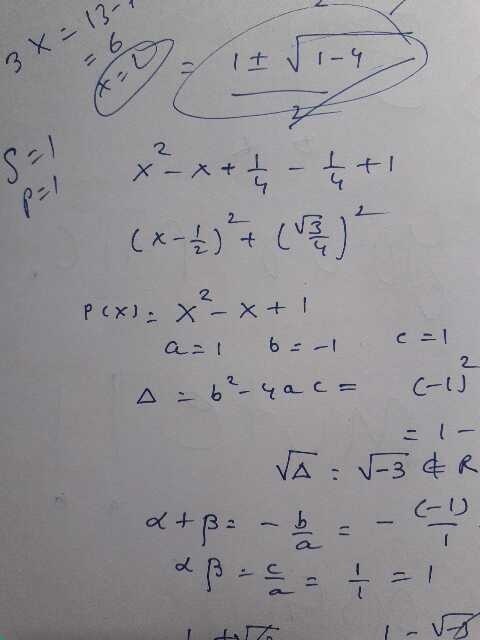 3x = 13-
= 6
x = 2
= 1 ± √1-4 / 2
S=1
P=1
x² - x + 1/4 - 1/4 + 1
(x - 1/2)² + (√3/4)²
P(x) = x² - x + 1
a = 1 b = -1 c = 1
Δ = b² - 4ac = (-1)²
= 1 -
√Δ = √-3 ∉ R
α + β = - b/a = - (-1)/1
αβ = c/a = 1/1 = 1